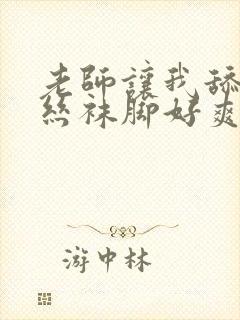 老師讓我舔
絲袜脚好爽
游中林